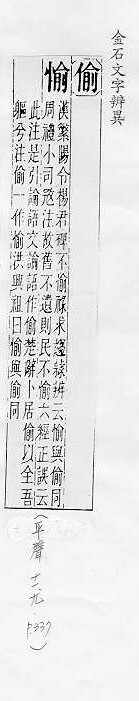 金石文字辨異
偷
愉
漢繁陽令楊君碑不愉祿求趨隸辨云愉與偷同
周禮小司寇注故舊不遺則民不愉六經正誤云
此注是引論語文論語作偷楚辭卜居偷以全吾
軀兮注偷一作愉洪興祖曰偷與愉同
(平聲十一.尤.p.337)